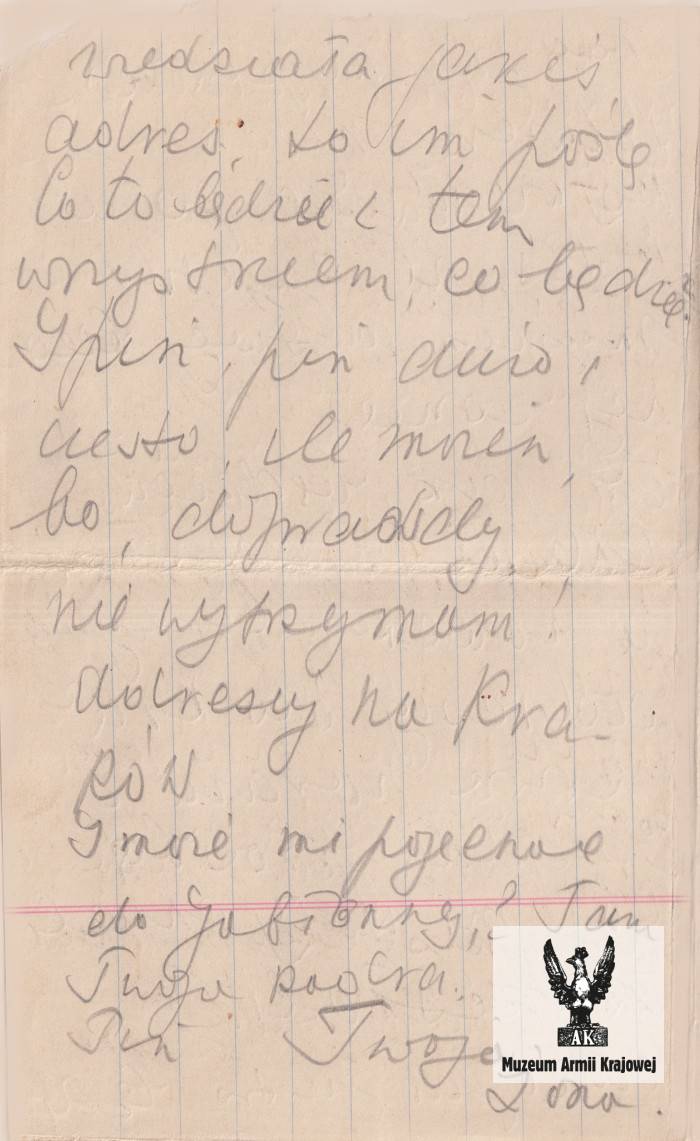 wiedziała jakiś
adres, to im poślę.
Co to będzie z tem
wszystkiem, co będzie?
I pisz, pisz dużo i
często, ile możesz,
bo, doprawdy
nie wytrzymam!
Adresuj na Kra-
ków.
I może mi pojechać
do Jabłonny,? Tam
Twoja
Pisz Twoja
Żona.
AK
Muzeum Armii Krajowej